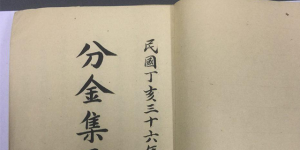 民國丁亥三十六年
分金集